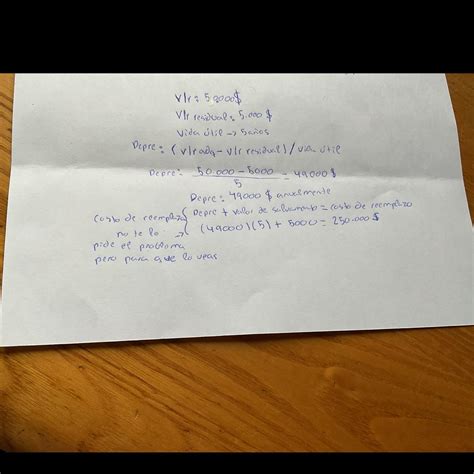 Vlr: 50000$
Vlr residual: 5.000 $
Vida útil → 5 años
Depre: (vlr adq - vlr residual)/vida útil
Depre: 50.000 - 5000 / 5 = 49000 $
Depre: 49000 $ anualmente
Costo de reemplazo { Depre + vallor de salvamento = costo de reemplazo
no te lo → (49000)(5) + 5000 = 250.000 $
pide el problema
pero para que lo veas